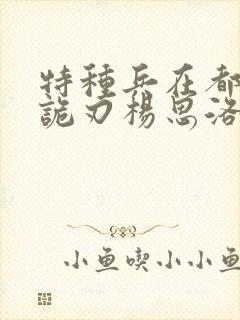 特種兵在都
詭刃楊思洛
小魚喫小小魚